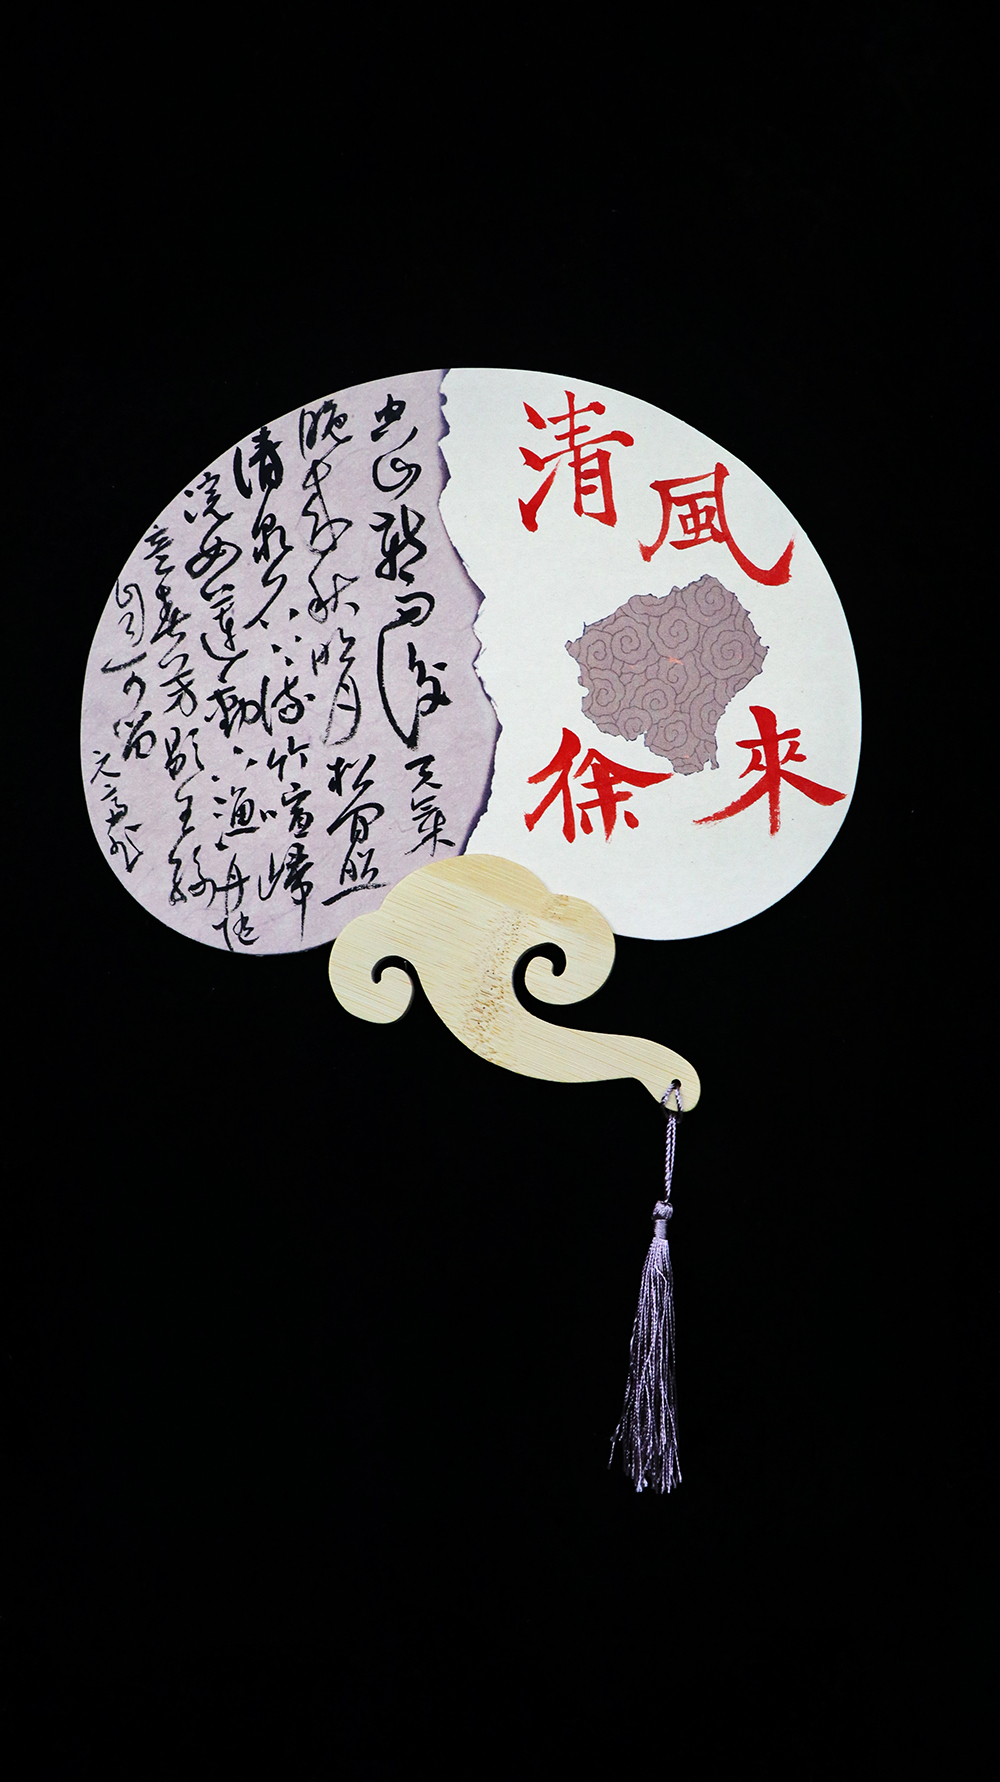 清風
徐來
空山新雨後天氣
晚來秋明月松間照
清泉石上流竹喧歸
浣女蓮動下漁舟隨
意春芳歇王孫
自可留